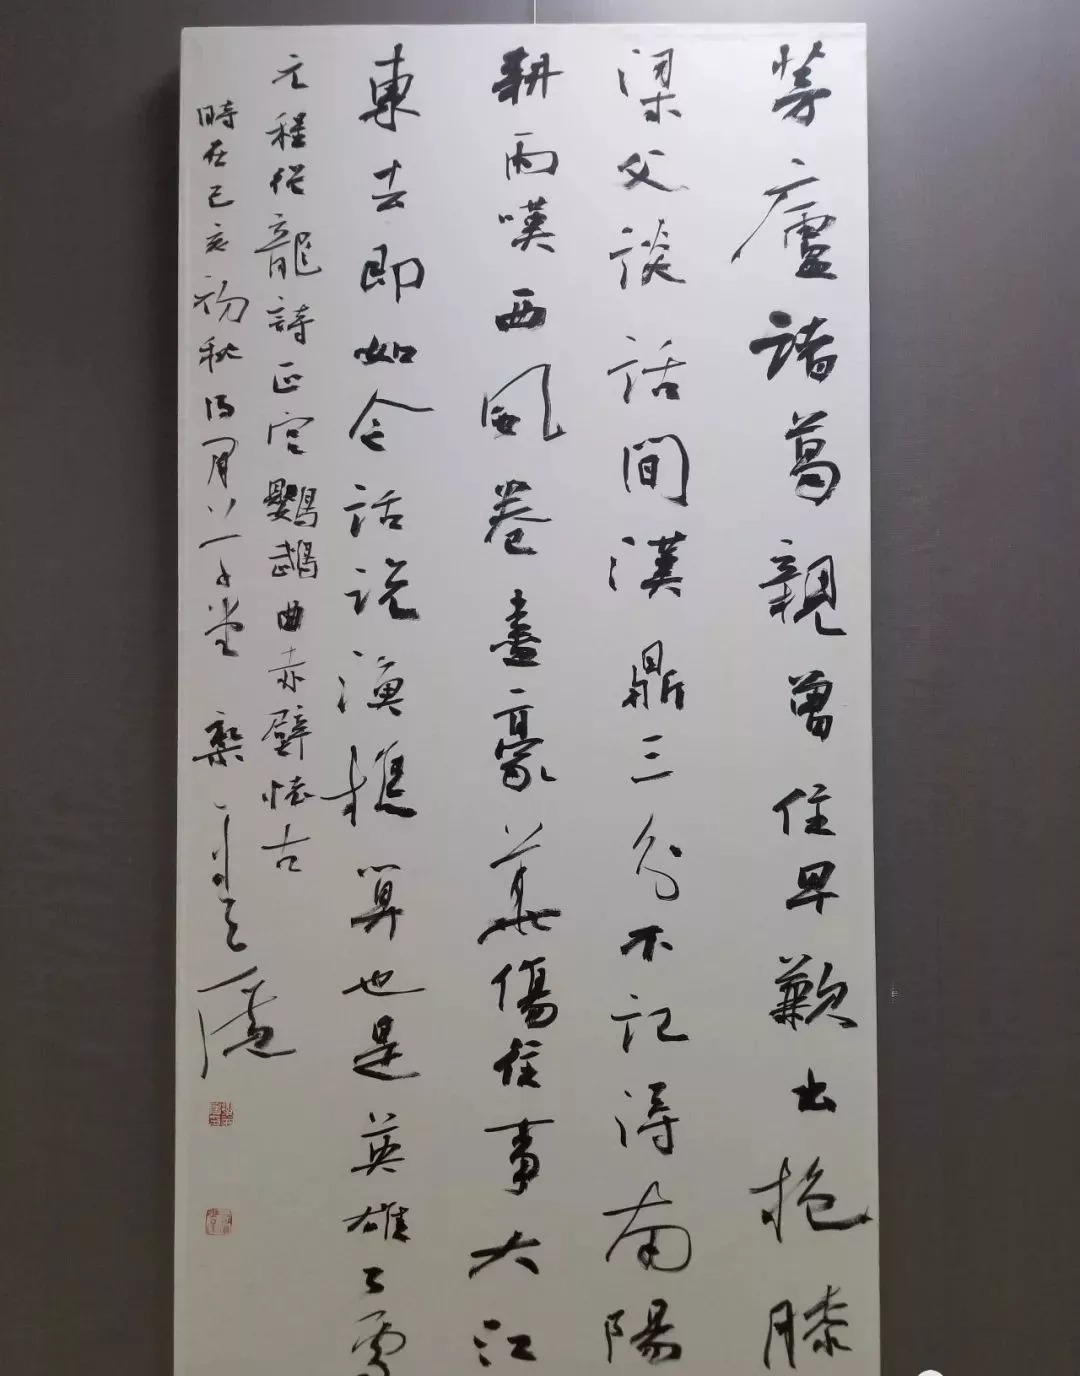 茅廬諸葛親曾住早歉出抱膝
梁父談話間漢鼎三分不記得南陽
耕雨嘆西風卷盡豪華傷往事大江
東去即如今話說漁樵算也是英雄了處
元程從龍詩正宮鸚鵡曲赤壁懷古
時在己亥初秋